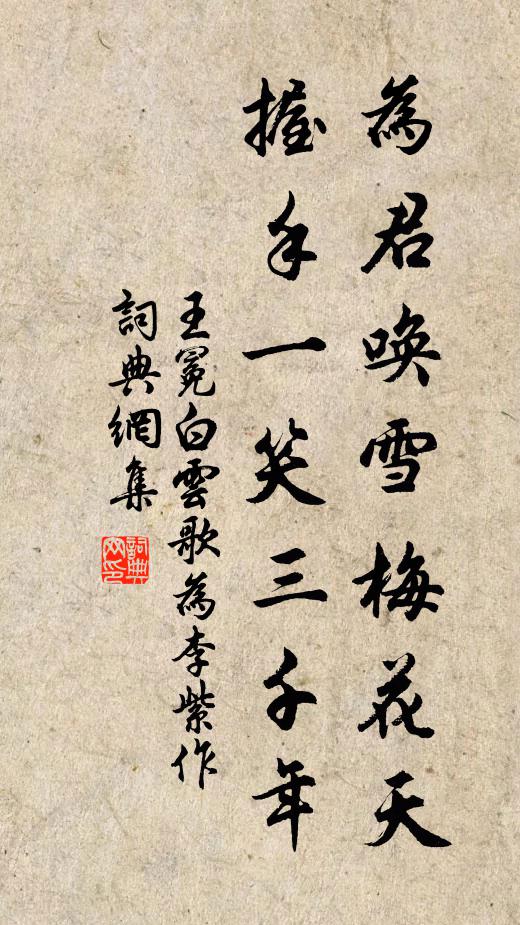 為君唤雪梅花天
握手一笑三千年
王冕白雲歌為李紫作
詞典網集
詞典网印